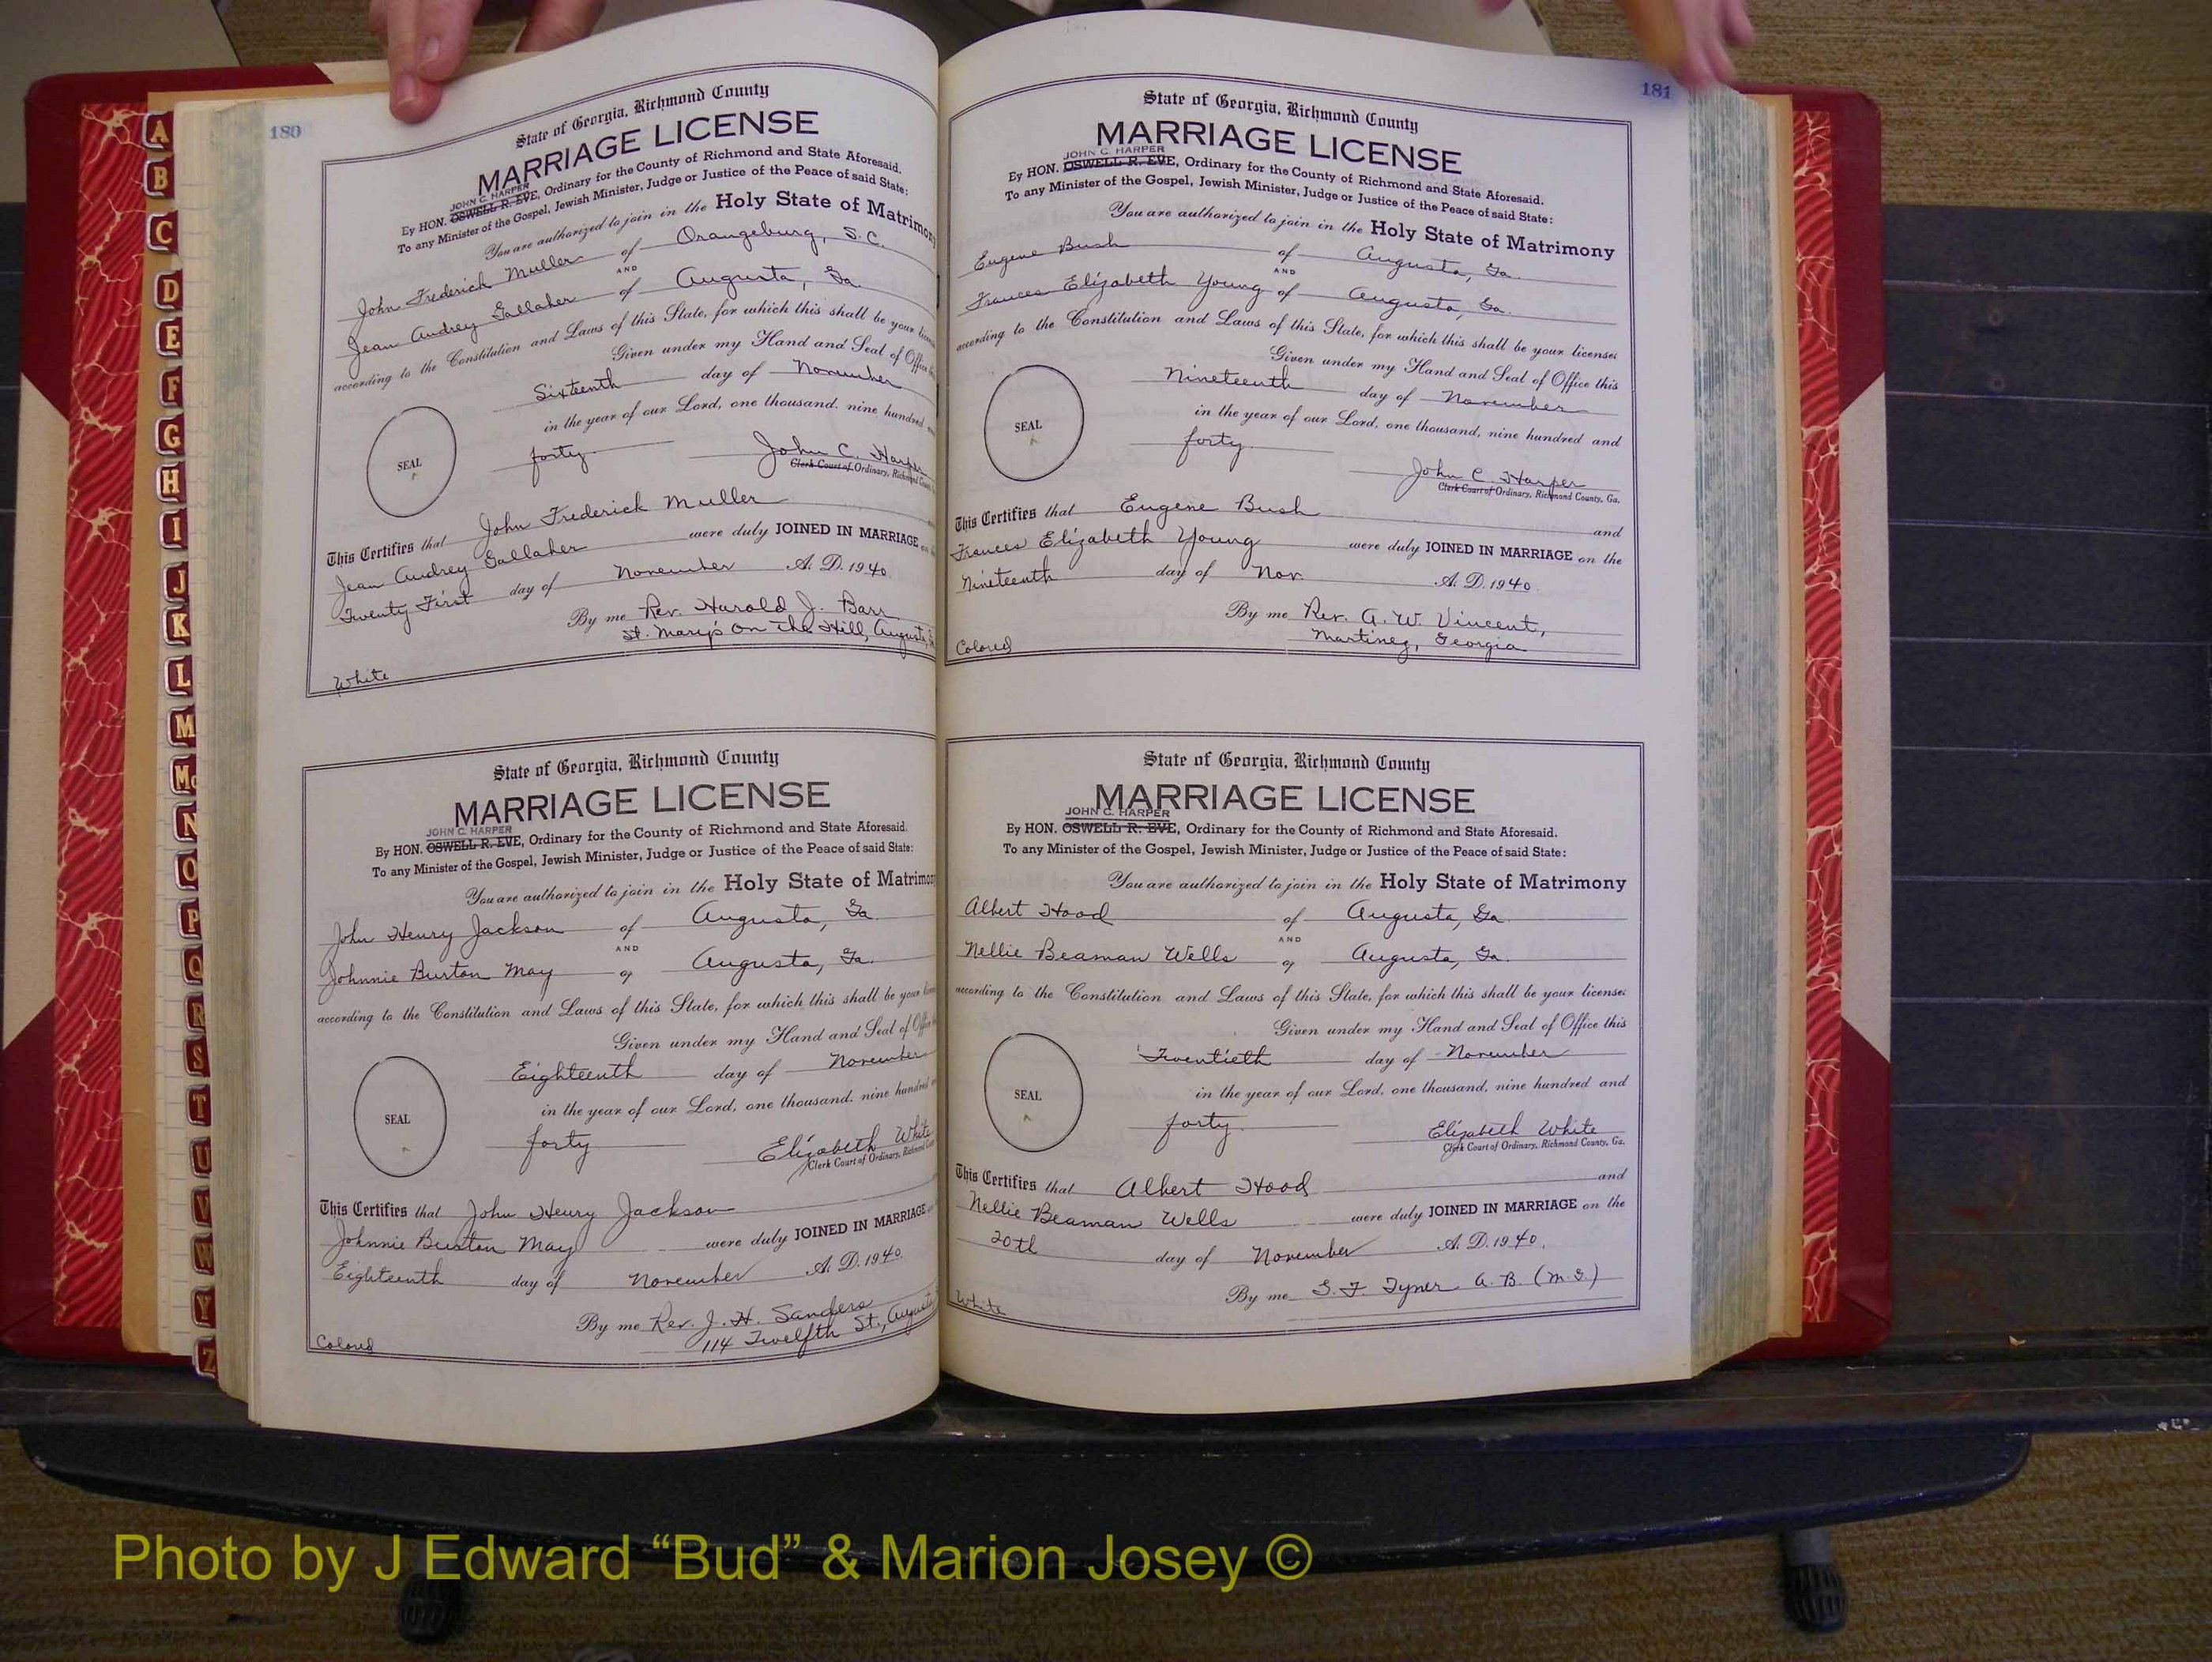 180
State of Georgia, Richmond County
MARRIAGE LICENSE
JOHN C. HARPER
By HON. OSWELL R. EVE, Ordinary for the County of Richmond and State Aforesaid.
To any Minister of the Gospel, Jewish Minister, Judge or Justice of the Peace of said State:
You are authorized to join in the Holy State of Matrimony
John Frederick Muller of Orangeburg, S.C.
AND
Jean Audrey Gallaher of Augusta, Ga.
according to the Constitution and Laws of this State, for which this shall be your
Given under my Hand and Seal of Office
Sixteenth day of November
in the year of our Lord, one thousand, nine hundred
forty
SEAL
John C. Harper
Clerk Court of Ordinary, Richmond
This Certifies that John Frederick Muller
Jean Audrey Gallaher were duly JOINED IN MARRIAGE
Twenty First day of November A. D. 1940
By me Rev. Harold J. Barr
St. Mary's On The Hill, Augusta,
White
State of Georgia, Richmond County
MARRIAGE LICENSE
JOHN C. HARPER
By HON. OSWELL R. EVE, Ordinary for the County of Richmond and State Aforesaid.
To any Minister of the Gospel, Jewish Minister, Judge or Justice of the Peace of said State:
You are authorized to join in the Holy State of Matrimony
John Henry Jackson of Augusta, Ga.
AND
Johnnie Burton May of Augusta, Ga.
according to the Constitution and Laws of this State, for which this shall be your
Given under my Hand and Seal of Office
Eighteenth day of November
in the year of our Lord, one thousand, nine hundred
forty
SEAL
Elizabeth White
Clerk Court of Ordinary, Richmond
This Certifies that John Henry Jackson
Johnnie Burton May were duly JOINED IN MARRIAGE
Eighteenth day of November A. D. 1940.
By me Rev. J. H. Sanders
114 Twelfth St., Augusta
Colored
181
State of Georgia, Richmond County
MARRIAGE LICENSE
JOHN C. HARPER
By HON. OSWELL R. EVE, Ordinary for the County of Richmond and State Aforesaid.
To any Minister of the Gospel, Jewish Minister, Judge or Justice of the Peace of said State:
You are authorized to join in the Holy State of Matrimony
Eugene Bush of Augusta, Ga.
AND
Frances Elizabeth Young of Augusta, Ga.
according to the Constitution and Laws of this State, for which this shall be your license:
Given under my Hand and Seal of Office this
Nineteenth day of November
in the year of our Lord, one thousand, nine hundred and
forty
SEAL
John C. Harper
Clerk Court of Ordinary, Richmond County, Ga.
This Certifies that Eugene Bush and
Frances Elizabeth Young were duly JOINED IN MARRIAGE on the
Nineteenth day of Nov. A. D. 1940.
By me Rev. A. W. Vincent,
Martinez, Georgia
Colored
State of Georgia, Richmond County
MARRIAGE LICENSE
JOHN C. HARPER
By HON. OSWELL R. EVE, Ordinary for the County of Richmond and State Aforesaid.
To any Minister of the Gospel, Jewish Minister, Judge or Justice of the Peace of said State:
You are authorized to join in the Holy State of Matrimony
Albert Hood of Augusta, Ga.
AND
Nellie Beaman Wells of Augusta, Ga.
according to the Constitution and Laws of this State, for which this shall be your license:
Given under my Hand and Seal of Office this
Twentieth day of November
in the year of our Lord, one thousand, nine hundred and
forty
SEAL
Elizabeth White
Clerk Court of Ordinary, Richmond County, Ga.
This Certifies that Albert Hood and
Nellie Beaman Wells were duly JOINED IN MARRIAGE on the
20th day of November A. D. 1940.
By me S. F. Tyner A. B. (M. G.)
White
A
B
C
D
E
F
G
H
I
J
K
L
M
Mc
N
O
P
Q
R
S
T
U
V
W
Y
Z
Photo by J Edward “Bud” & Marion Josey ©